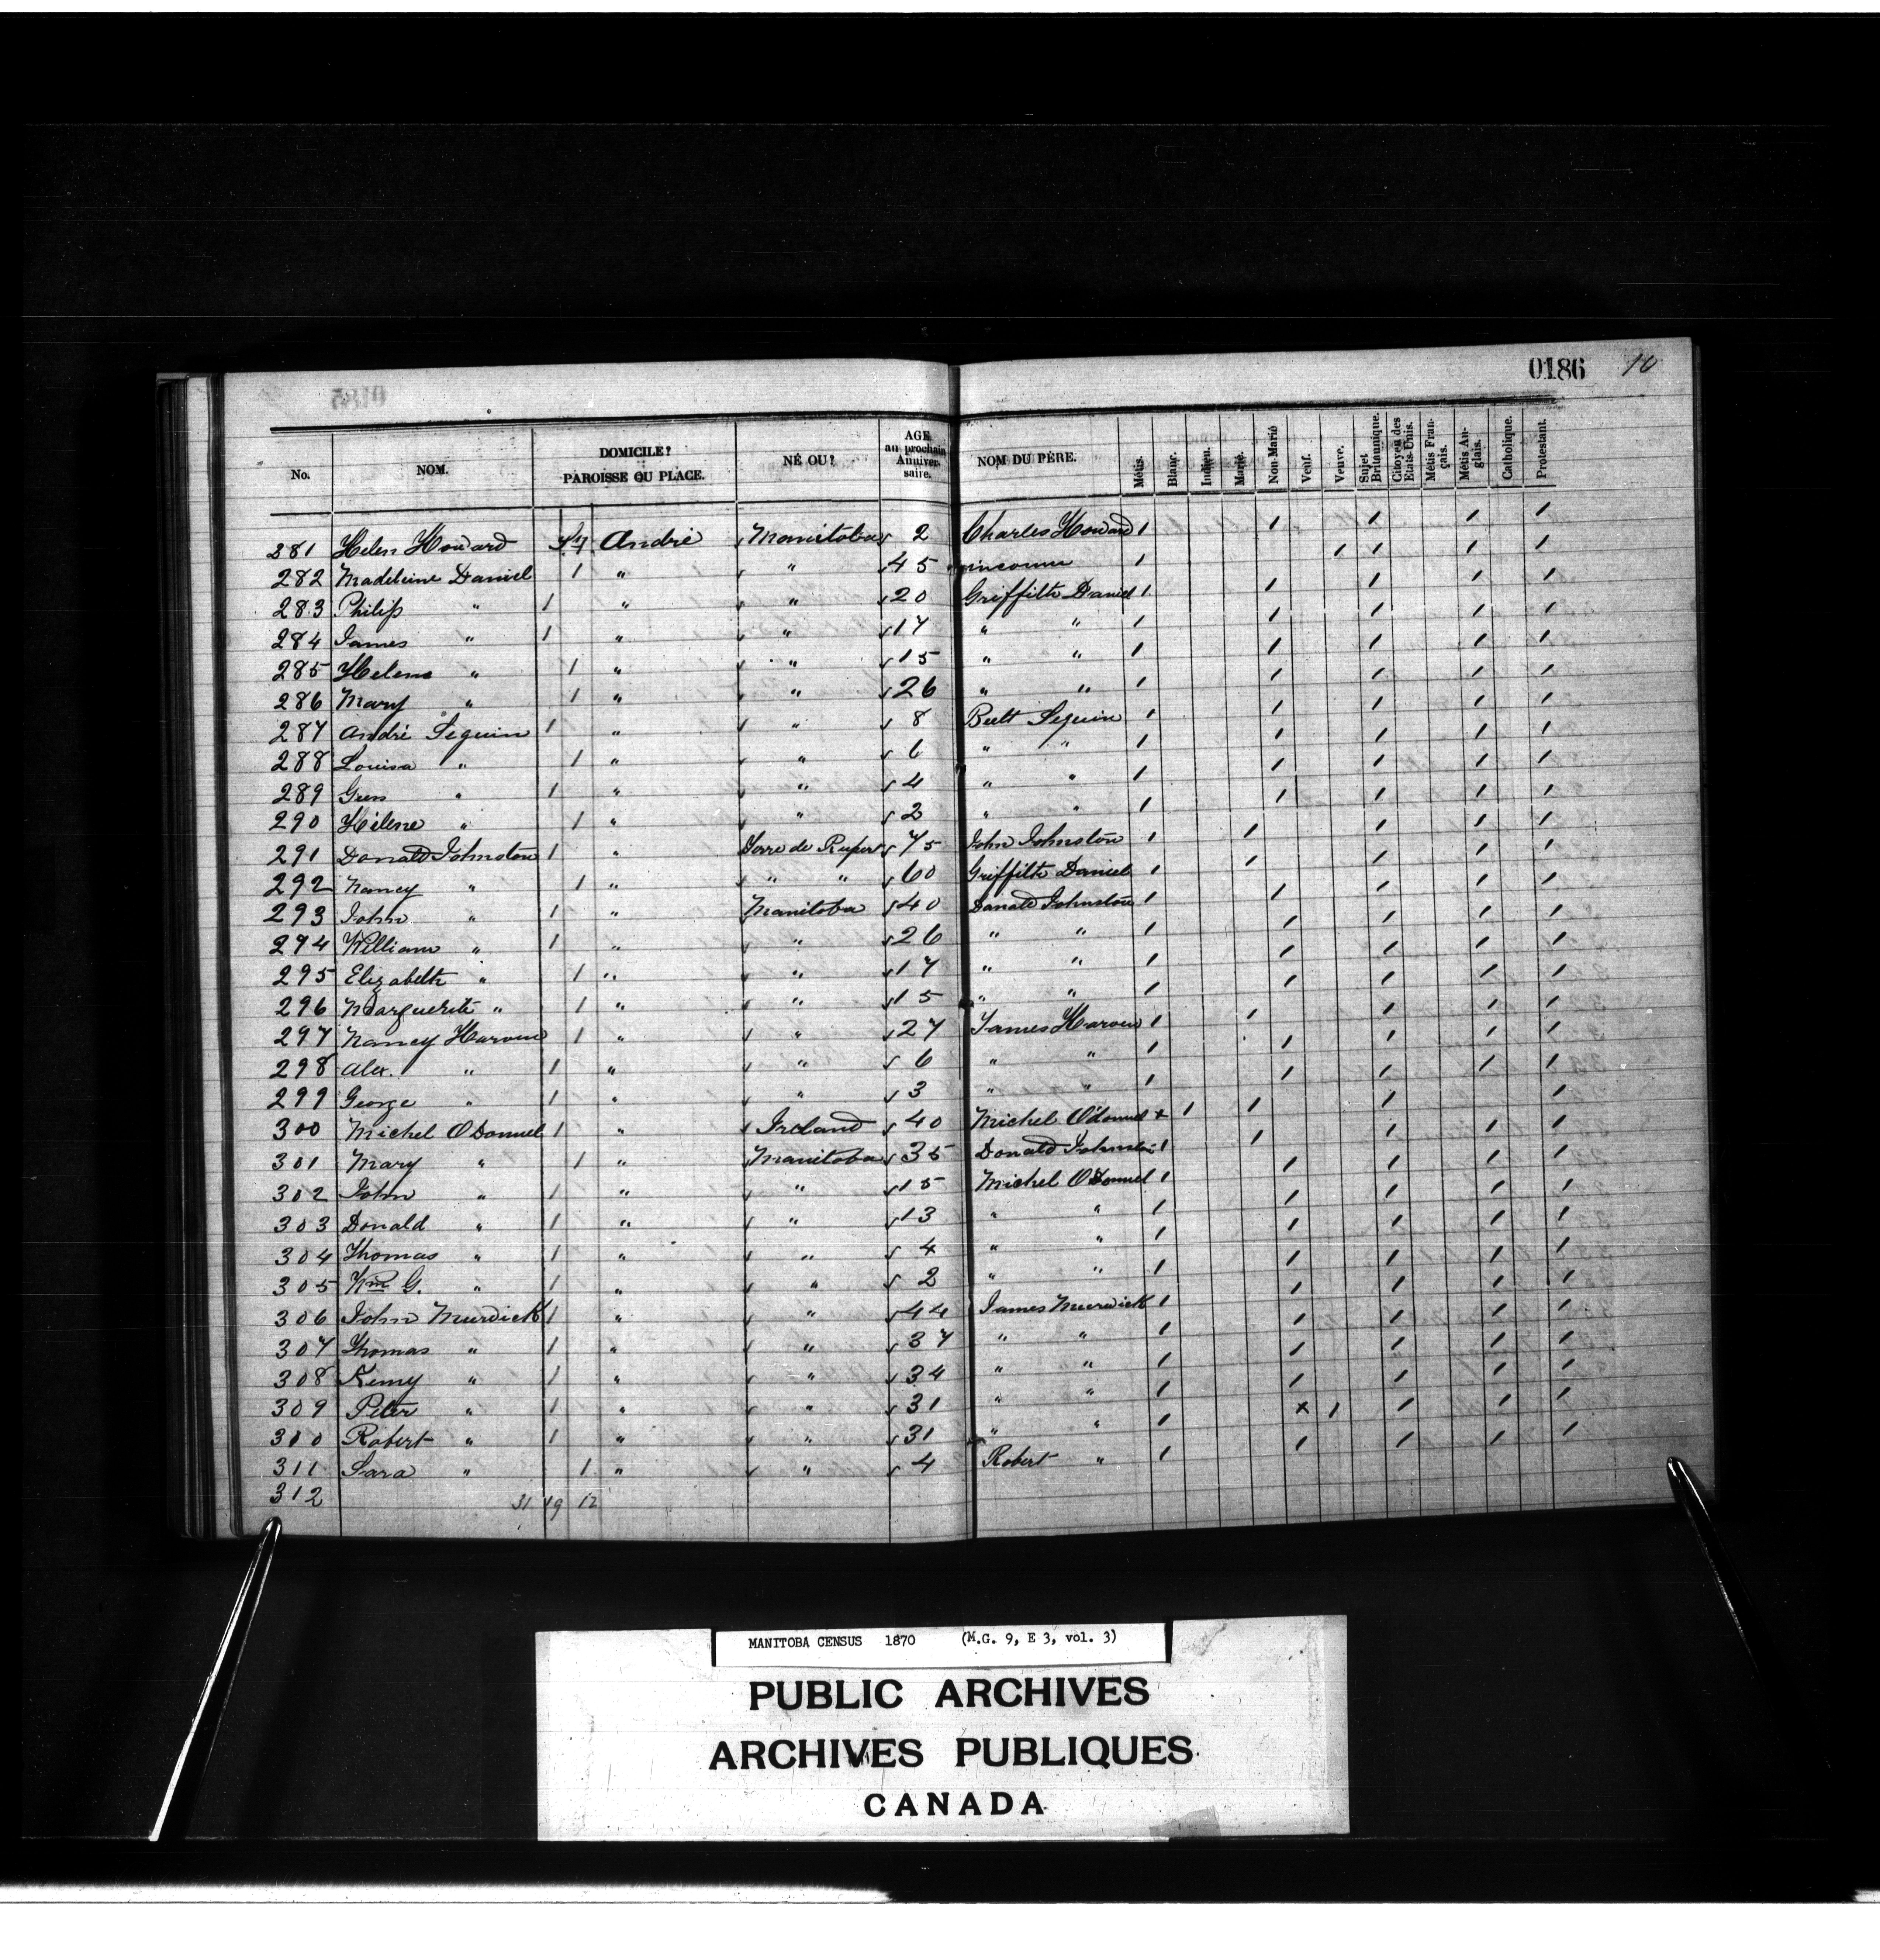 0186 10
No. NOM. DOMICILE? PAROISSE OU PLACE. NÉ OU? AGE au prochain Anniversaire. NOM DU PÈRE. Métis. Blanc. Indien. Marié. Non-Marié Veuf. Veuve. Sujet Britannique. Citoyen des Etats-Unis. Métis Français. Métis Anglais. Catholique. Protestant.
281 Helen Howard St André Manitoba 2 Charles Howard 1 1 1 1 1
282 Madeleine Daniel 1 " " 45 inconnu 1 1 1 1 1
283 Philip " 1 " " 20 Griffith Daniel 1 1 1 1 1
284 James " 1 " " 17 " " 1 1 1 1 1
285 Helene " 1 " " 15 " " 1 1 1 1 1
286 Mary " 1 " " 26 " " 1 1 1 1 1
287 André Seguin 1 " " 8 Seguin 1 1 1 1 1
288 Louisa " 1 " " 6 " " 1 1 1 1 1
289 " 1 " " 4 " " 1 1 1 1 1
290 Hélene " 1 " " 2 " " 1 1 1 1 1
291 Donald Johnston 1 " Terre de Rupert 75 John Johnston 1 1 1 1 1
292 Nancy " 1 " " " 60 Griffith Daniel 1 1 1 1 1
293 John " 1 " Manitoba 40 Donald Johnston 1 1 1 1 1
294 William " 1 " " 26 " " 1 1 1 1 1
295 Elizabeth " 1 " " 17 " " 1 1 1 1 1
296 Marguerite " 1 " " 15 " " 1 1 1 1 1
297 Nancy 1 " " 27 James 1 1 1 1 1
298 Alex. " 1 " " 6 " " 1 1 1 1 1
299 George " 1 " " 3 " " 1 1 1 1 1
300 Michel ODonnel 1 " Ireland 40 Michel Odonnel x 1 1 1 1
301 Mary " 1 " Manitoba 35 Donald Johnston 1 1 1 1 1
302 John " 1 " " 15 Michel ODonnel 1 1 1 1 1
303 Donald " 1 " " 13 " " 1 1 1 1 1
304 Thomas " 1 " " 4 " " 1 1 1 1 1
305 Wm G. " 1 " " 2 " " 1 1 1 1 1
306 John Murdick 1 " " 44 James Murdick 1 1 1 1 1
307 Thomas " 1 " " 37 " " 1 1 1 1 1
308 " 1 " " 34 " " 1 1 1 1 1
309 Peter " 1 " " 31 " " 1 1 1 1 1
310 Robert " 1 " " 31 " " 1 x 1 1 1 1
311 Sara " 1 " " 4 Robert " 1 1 1 1 1
312 31 19 12
MANITOBA CENSUS 1870 (M.G. 9, E 3, vol. 3)
PUBLIC ARCHIVES
ARCHIVES PUBLIQUES
CANADA